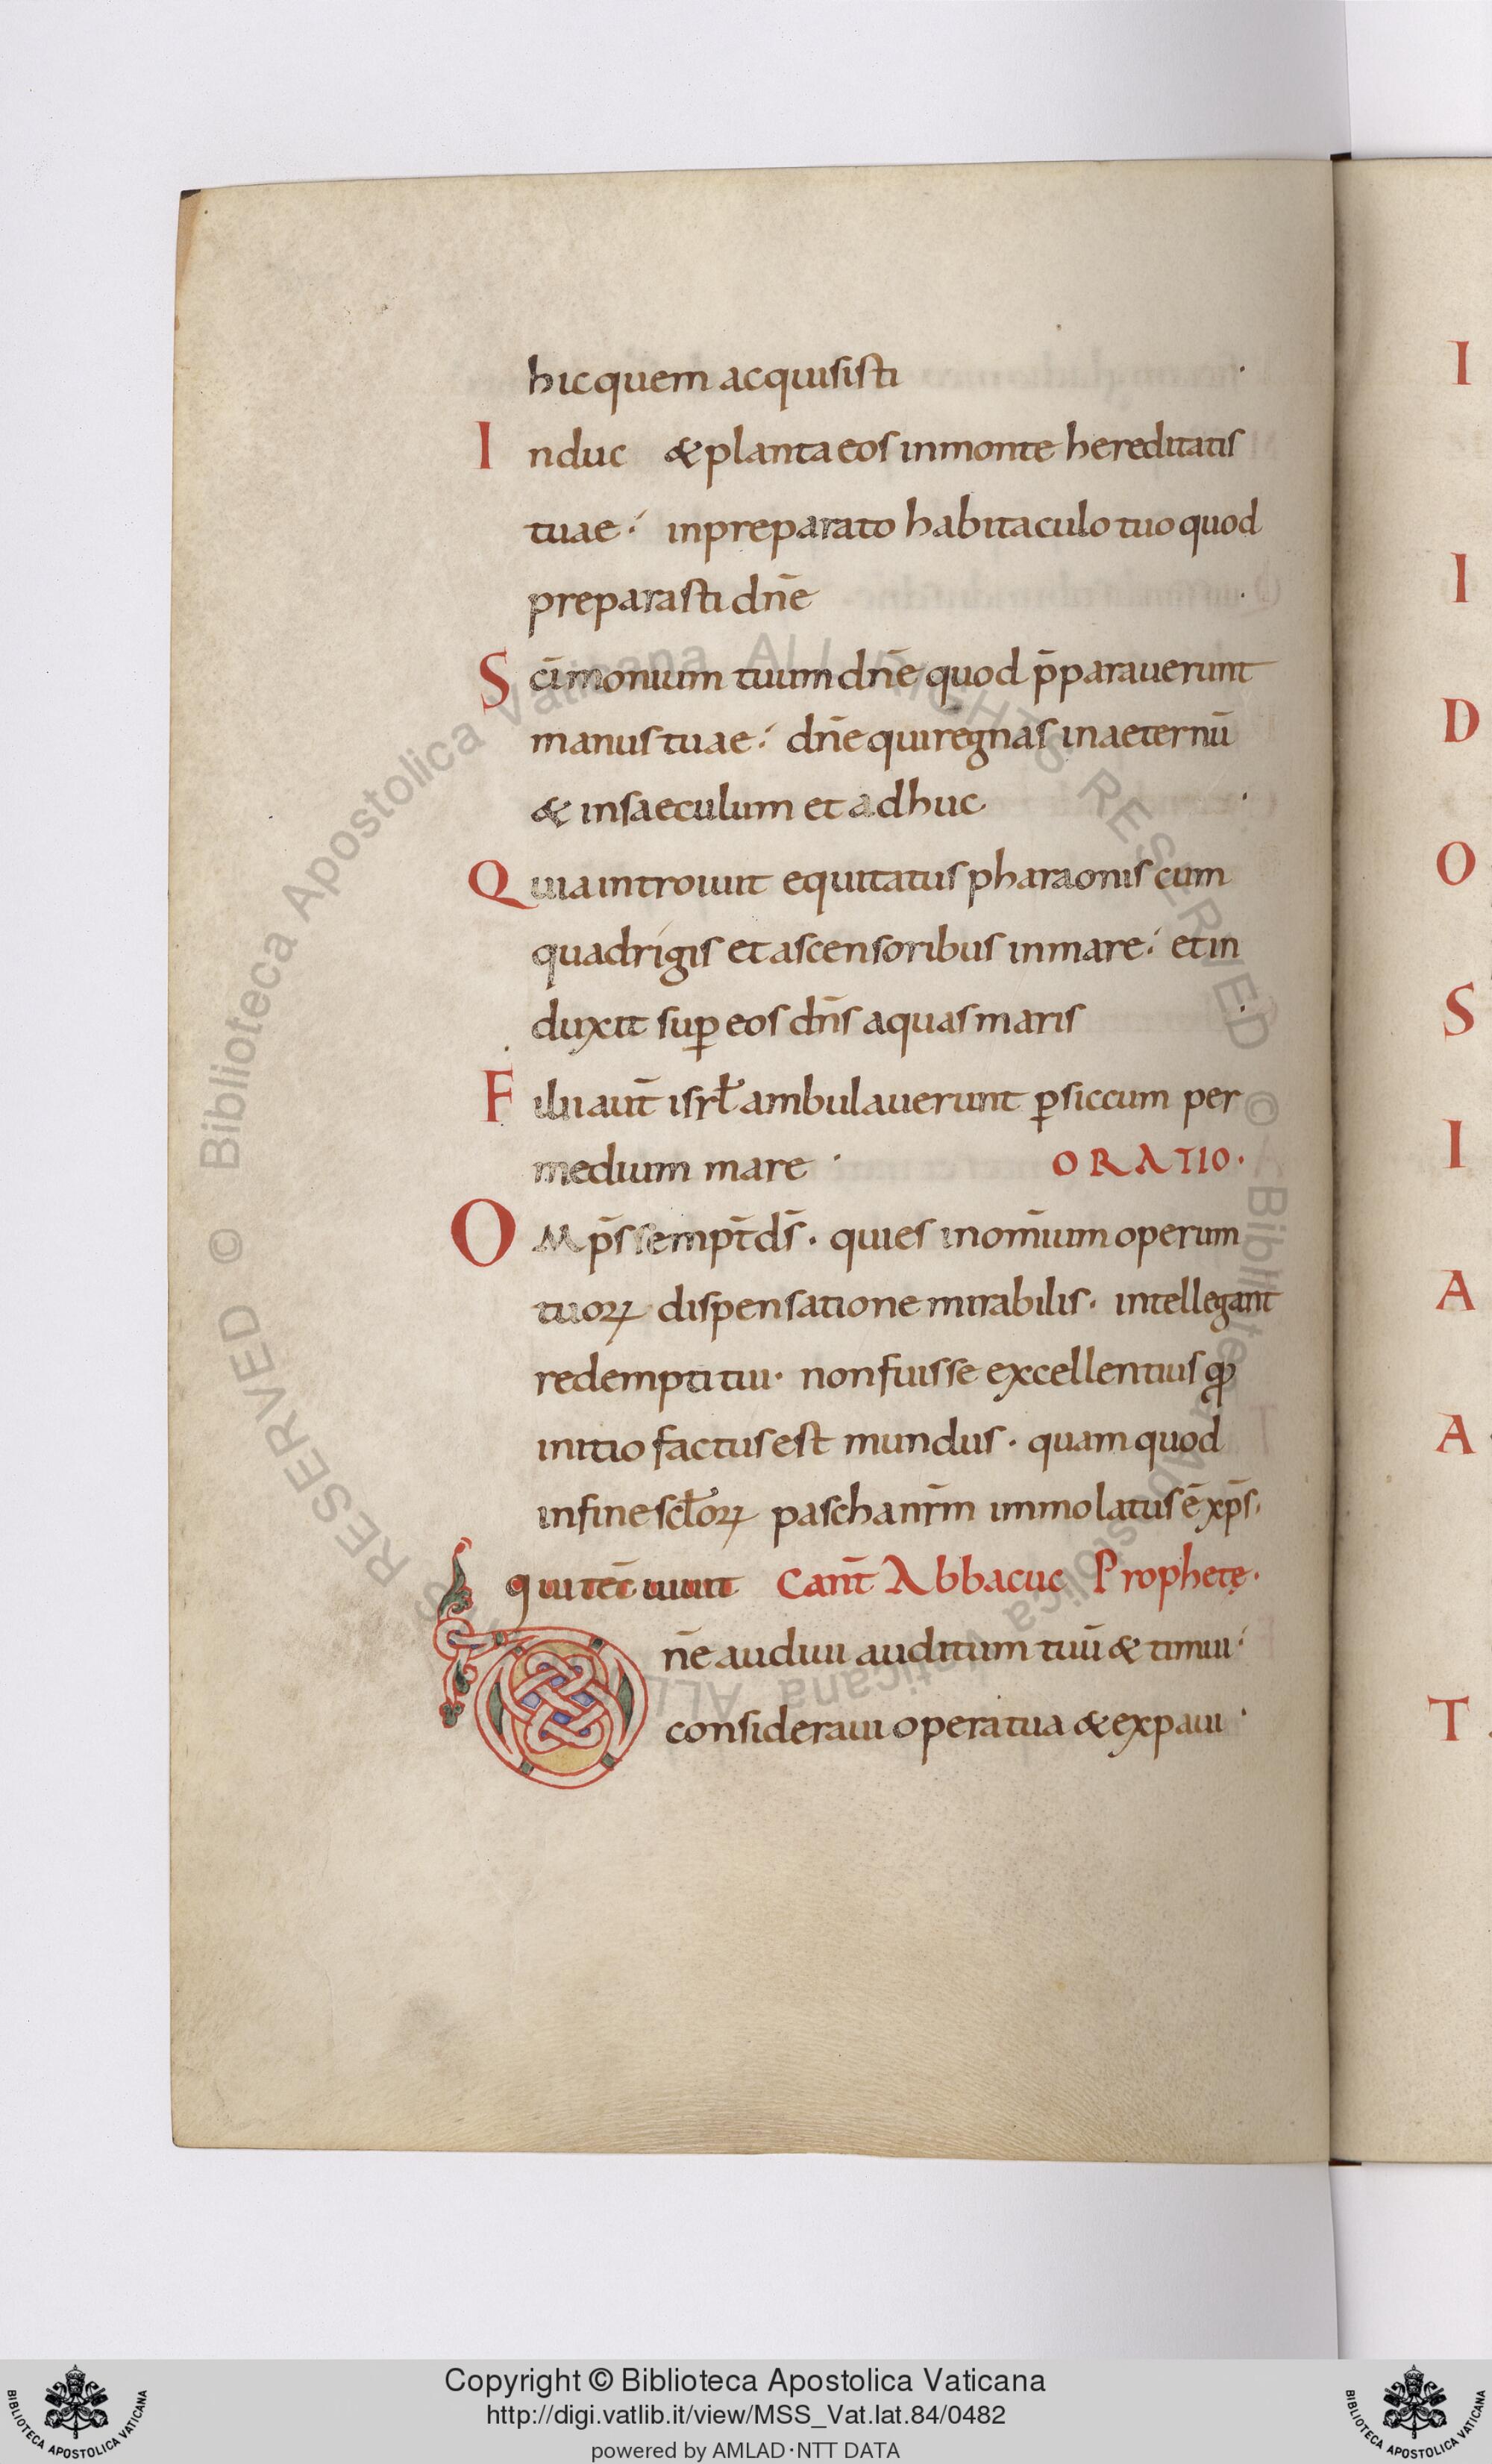 hic quem acquisisti
Induc & planta eos in monte hereditatis
tuae·́ in preparato habitaculo tuo quod
preparasti dn̄e
Sc̄imonium tuum dn̄e quod p̄parauerunt
manus tuae·́ dn̄e qui regnas in aeternū
& in saeculum et adhuc
Quia introiuit equitatus pharaonis cum
quadrigis et ascensoribus in mare·́ et in
duxit sup̲ eos dn̄s aquas maris
Filii aut̄ isrł ambulauerunt ꝑ siccum per
medium mare· ORATIO·
OMp̄s sempt̄ ds̄· qui es in om̄ium operum
tuoꝝ dispensatione mirabilis· intellegant
redempti tui· non fuisse excellentius ꝙ
initio factus est mundus· quam quod
in fine scłoꝝ pascha nr̄m immolatus ē xp̄s·
qui tec̄ uiuit Cant̄ Abbacuc Prophetę·
Dn̄e audiui auditum tuū & timui·́
consideraui opera tua & expaui·
I
I
D
O
S
I
A
A
T
Biblioteca Apostolica Vaticana ALL RIGHTS RESERVED ©
Biblioteca Apostolica Vaticana ALL RIGHTS RESERVED ©
Copyright © Biblioteca Apostolica Vaticana
http://digi.vatlib.it/view/MSS_Vat.lat.84/0482
powered by AMLAD·NTT DATA
BIBLIOTECA APOSTOLICA VATICANA
BIBLIOTECA APOSTOLICA VATICANA